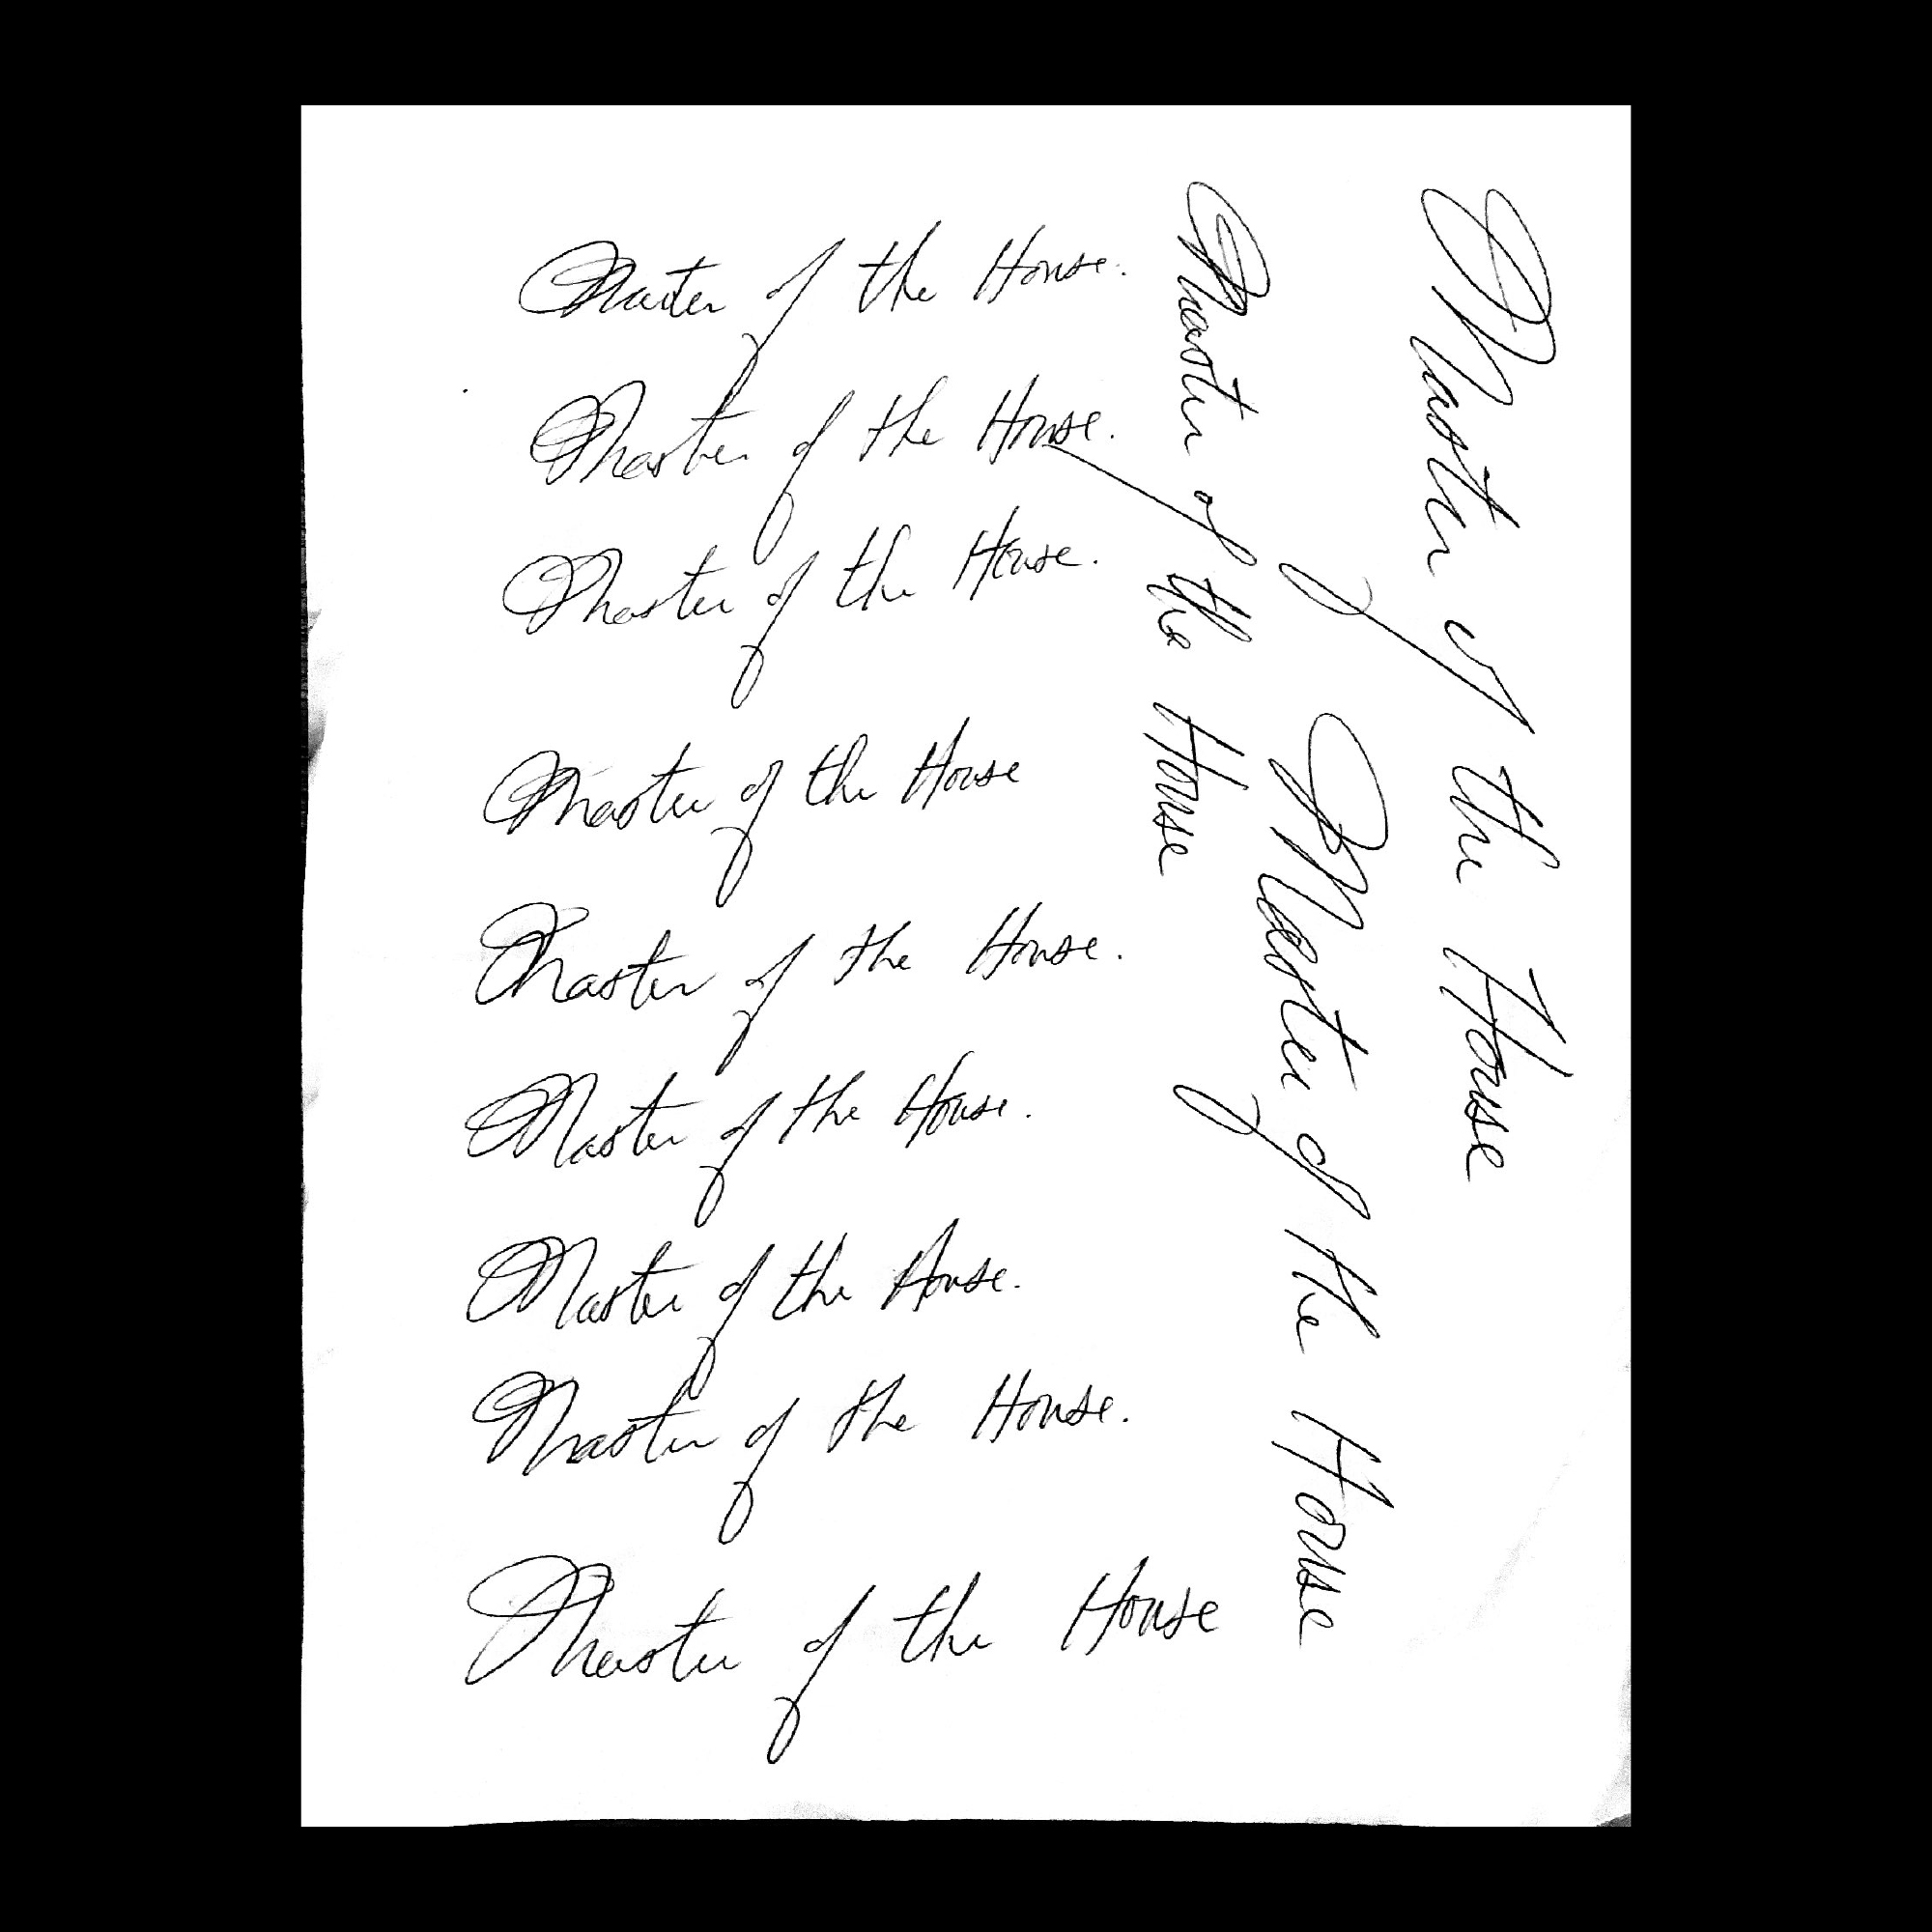 Master of the House.
Master of the House.
Master of the House.
Master of the House
Master of the House.
Master of the House.
Master of the House.
Master of the House.
Master of the House
Master of the House
Master of the House
Master of the House